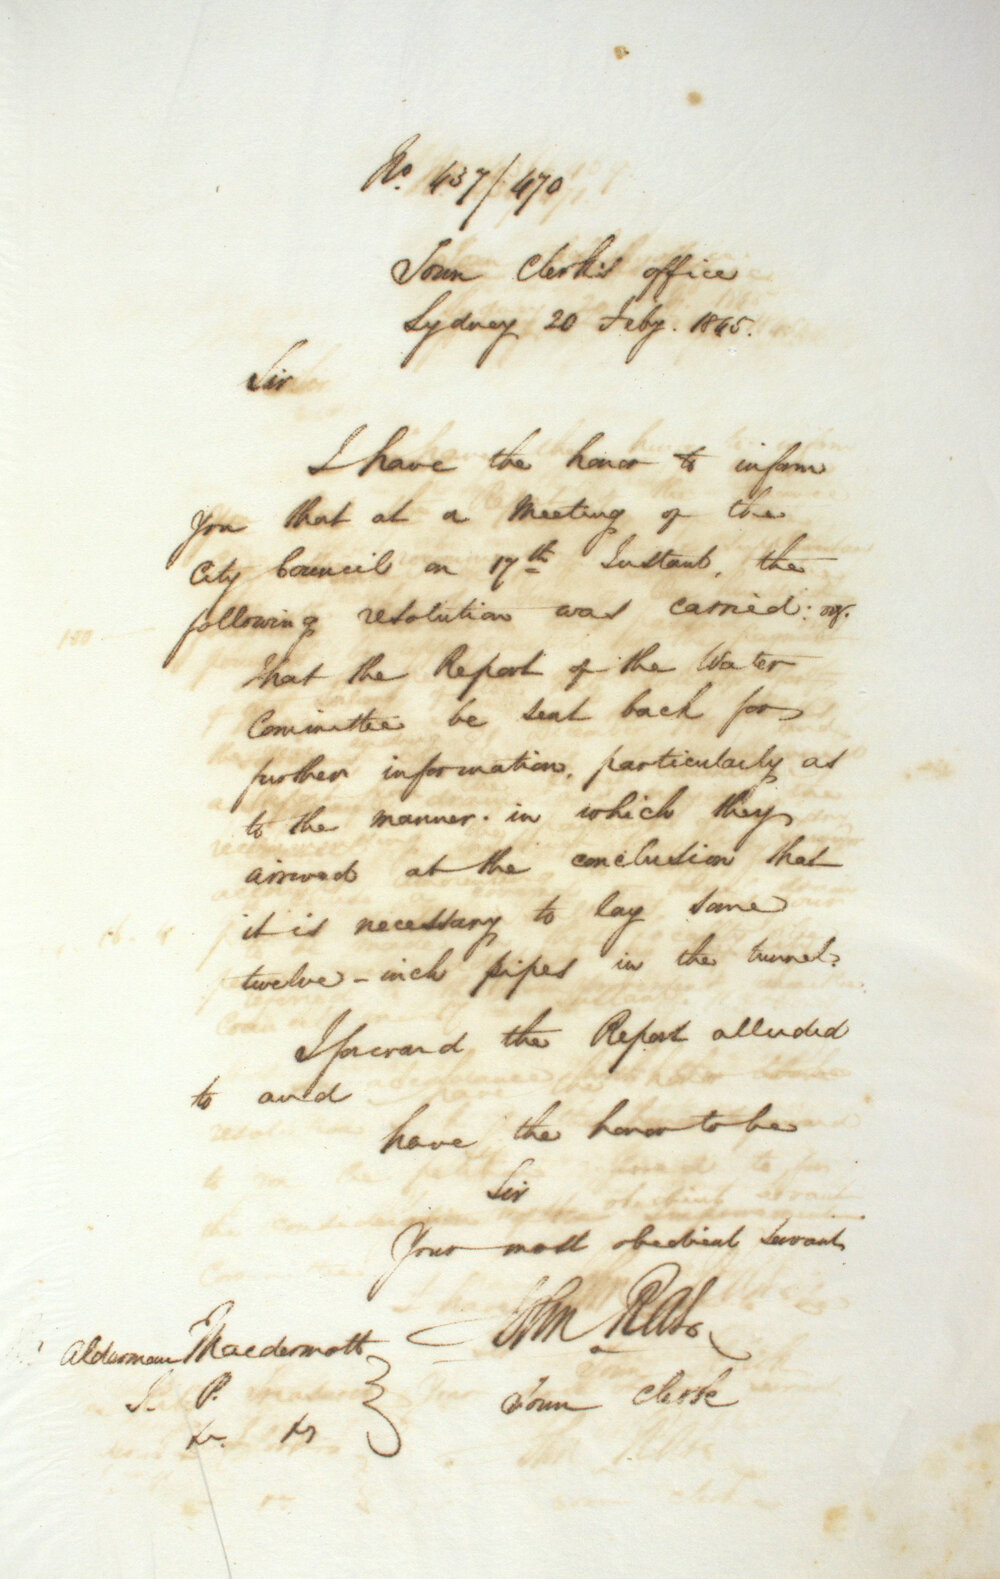 No. 437/470
Town Clerk's office
Sydney 20 Feby. 1845.
Sir
I have the honor to inform
you that at a Meeting of the
City Council on 17th Instant, the
following resolution was carried:
That the Report of the Water
Committee be sent back for
further information, particularly as
to the manner in which they
arrived at the conclusion that
it is necessary to lay some
twelve-inch pipes in the tunnel.
I forward the Report alluded
to and
have the honor to be
Sir
Your most obedient servant
John Rae
Alderman Macdermott
Town Clerk